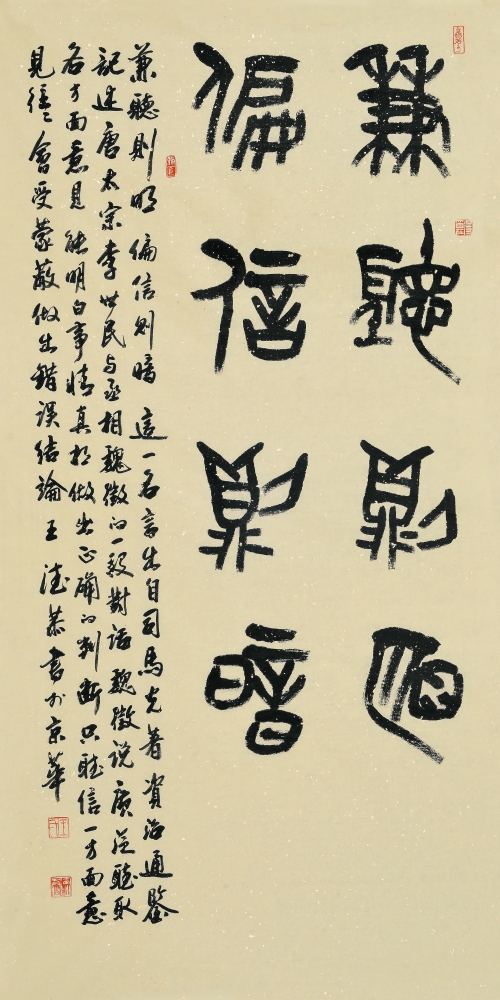 兼聽則明
偏信則暗
兼聽則明偏信則暗這一名言出自司馬光著資治通鑒
記述唐太宗李世民与丞相魏徵的一段對話魏徵说廣泛聽取
各方面意見能明白事情真相做出正確的判斷只聽信一方面意
見往往會受蒙蔽做出錯误结論王 恭書於京華